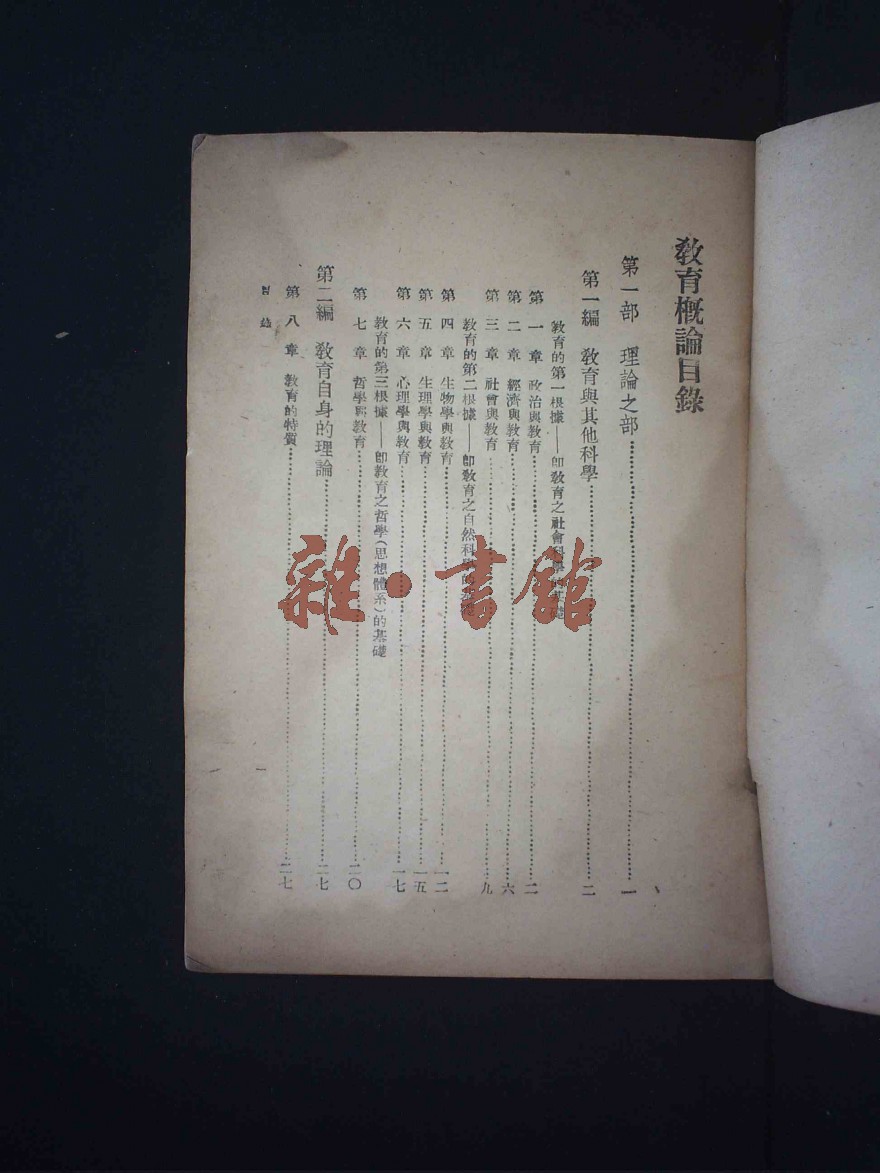 教育概論目錄
第一部 理論之部⋯⋯一
第一編 教育與其他科學⋯⋯二
教育的第一根據——即教育之社會科學的基礎
第一章 政治與教育⋯⋯二
第二章 經濟與教育⋯⋯六
第三章 社會與教育⋯⋯九
教育的第二根據——即教育之自然科學的基礎
第四章 生物學與教育⋯⋯一二
第五章 生理學與教育⋯⋯一五
第六章 心理學與教育⋯⋯一七
教育的第三根據——即教育之哲學(思想體系)的基礎
第七章 哲學與教育⋯⋯二〇
第二編 教育自身的理論⋯⋯二七
第八章 教育的特質⋯⋯二七
目錄 一
雜·書館